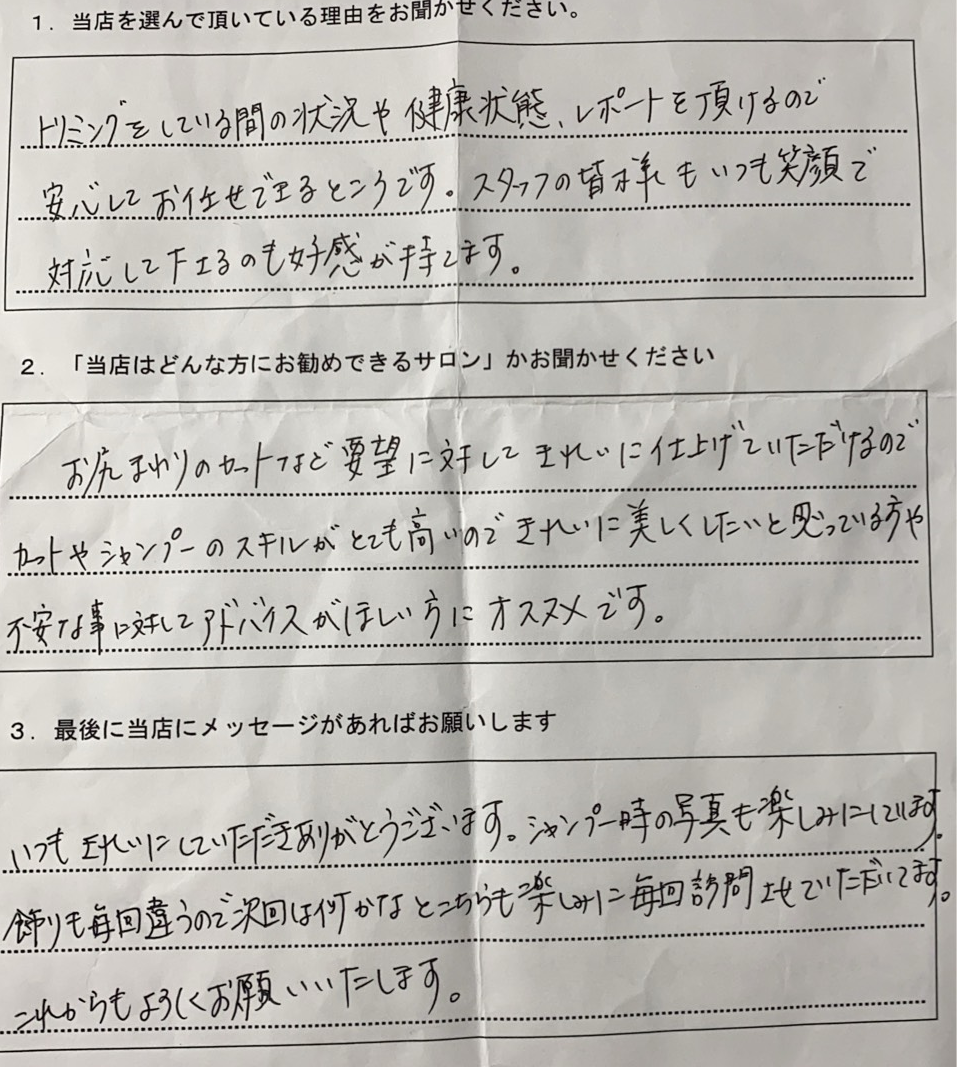 1. 当店を選んで頂いている理由をお聞かせください。
トリミングをしている間の状況や健康状態、レポートを頂けるので
安心してお任せできるところです。スタッフの皆様もいつも笑顔で
対応して下さるのも好感が持てます。
2. 「当店はどんな方にお勧めできるサロン」かお聞かせください
お尻まわりのカットなど要望に対してきれいに仕上げていただけるので
カットやシャンプーのスキルがとても高いのできれいに美しくしたいと思っている方や
不安な事に対してアドバイスがほしい方にオススメです。
3. 最後に当店にメッセージがあればお願いします
いつもきれいにしていただきありがとうございます。シャンプー時の写真も楽しみにしています。
飾りも毎回違うので次回は何かなとこちらも楽しみに毎回訪問させていただいてます。
これからもよろしくお願いいたします。